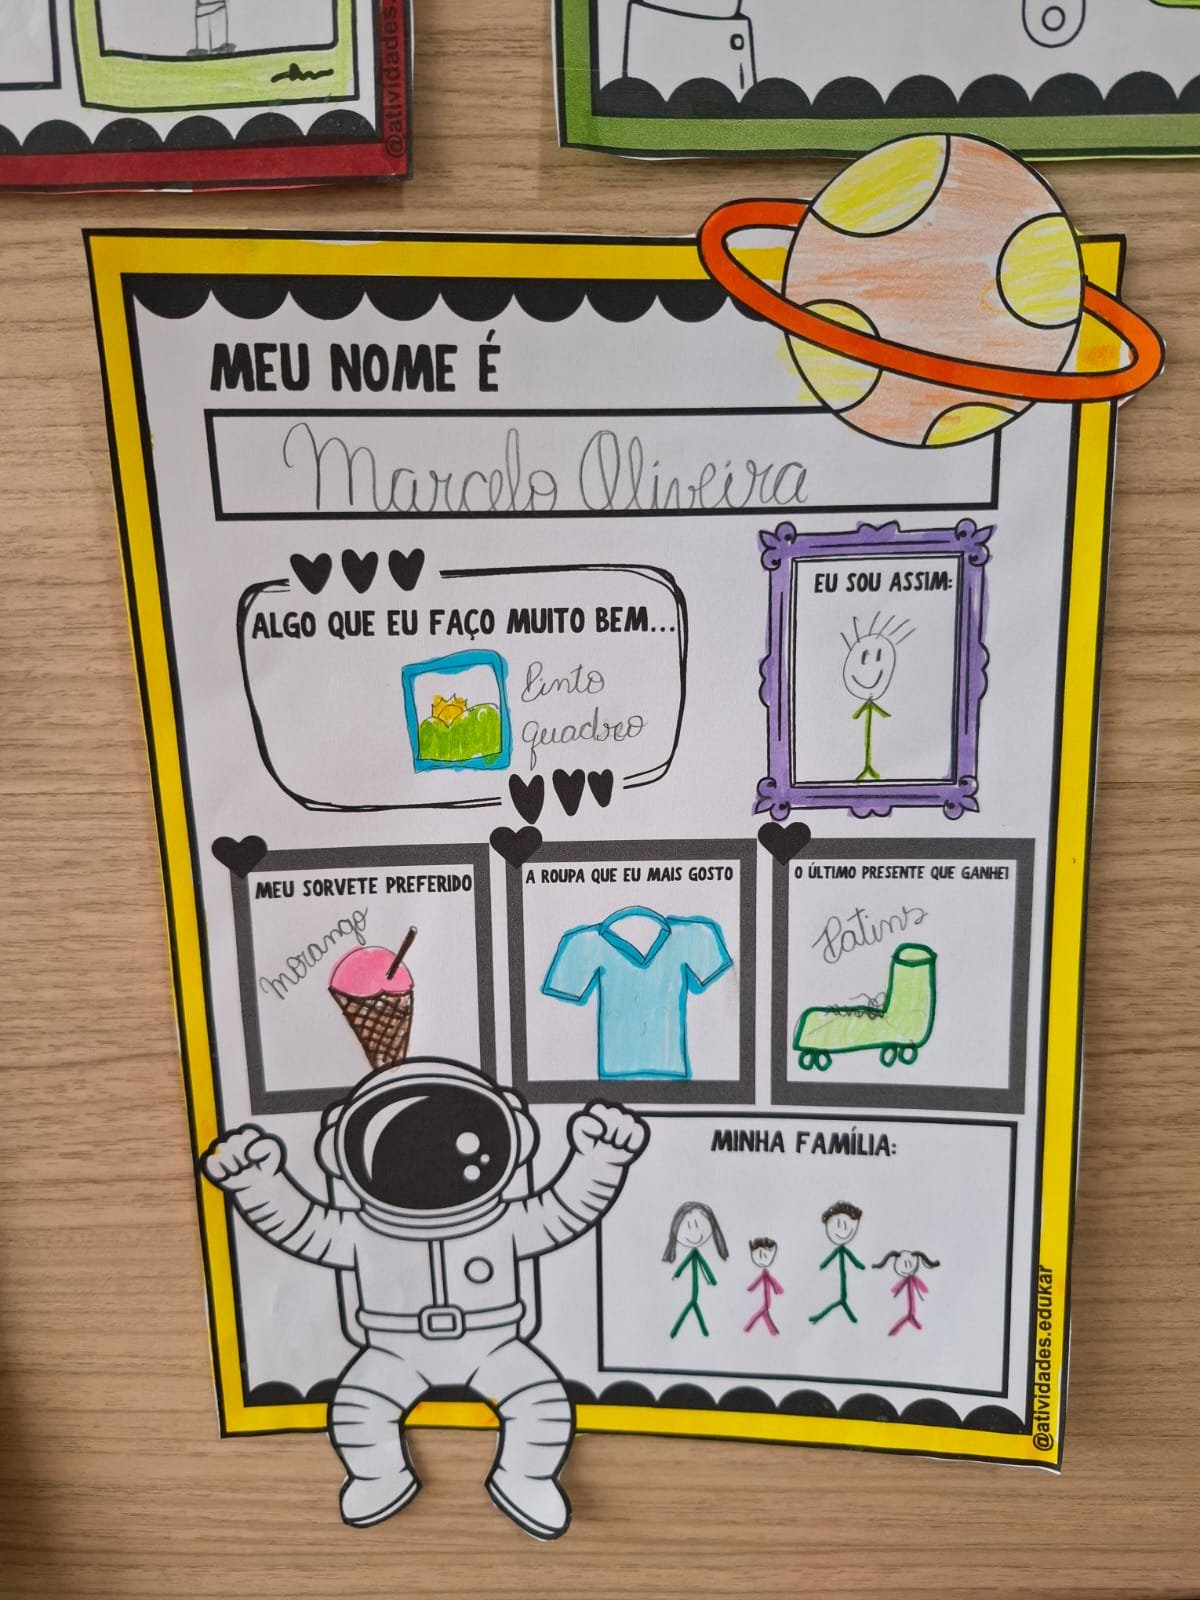 @atividades.
MEU NOME É
Marcelo Oliveira
ALGO QUE EU FAÇO MUITO BEM...
Pinto
quadro
EU SOU ASSIM:
MEU SORVETE PREFERIDO
morango
A ROUPA QUE EU MAIS GOSTO
O ÚLTIMO PRESENTE QUE GANHEI
Patins
MINHA FAMÍLIA:
@atividades.edukar